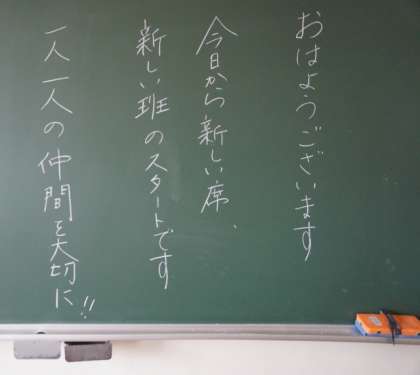 おはようございます
今日から新しい席、
新しい班のスタートです
一人一人の仲間を大切に!!